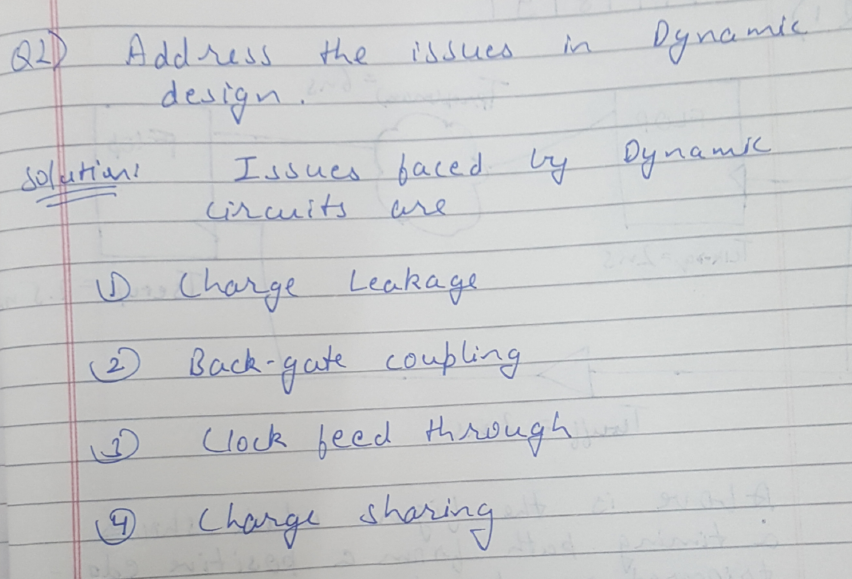 Q2) Address the issues in Dynamic
design.
Solution: Issues faced by Dynamic
circuits are
① Charge Leakage
② Back-gate coupling
③ Clock feed through
④ Charge sharing